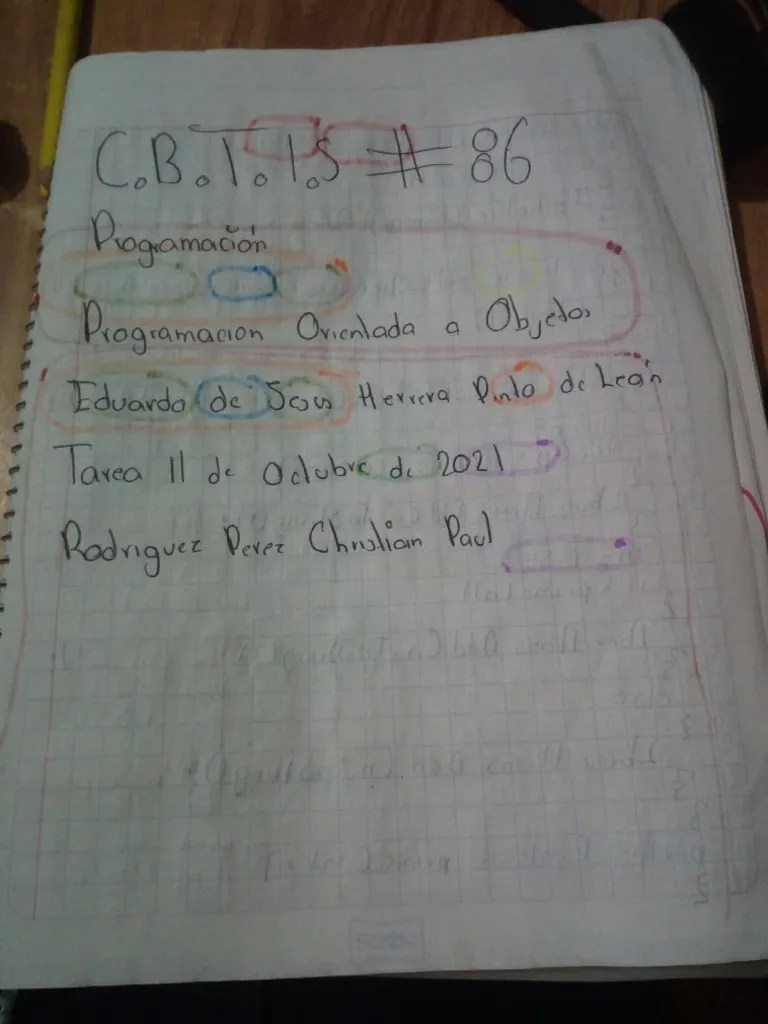 C.B.T.I.S # 86
Programación
Programacion Orientada a Objetos
Eduardo de Jesus Herrera Pinto de León
Tarea 11 de Octubre de 2021
Rodriguez Perez Christian Paul